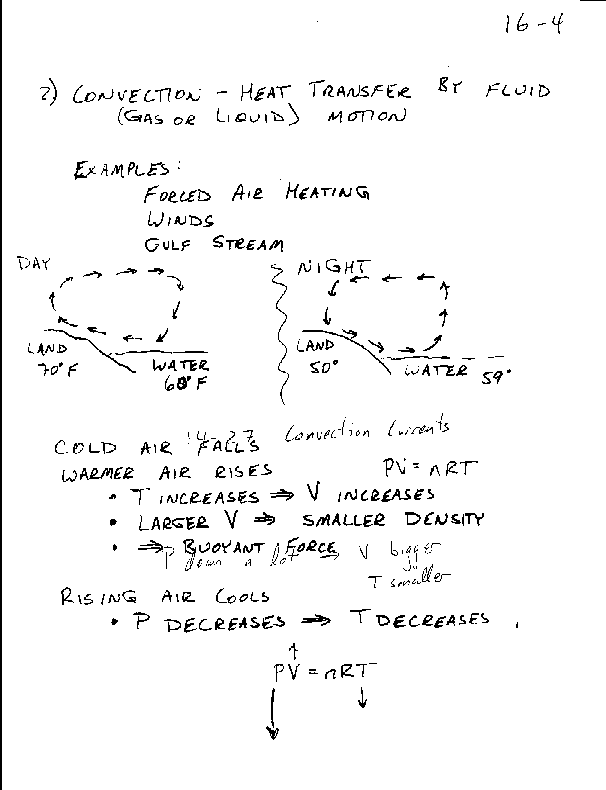 16-4
2) CONVECTION - HEAT TRANSFER BY FLUID
(GAS OR LIQUID) MOTION
EXAMPLES:
FORCED AIR HEATING
WINDS
GULF STREAM
DAY
LAND
70°F
WATER
60°F
NIGHT
LAND
50°
WATER 59°
14-27 Convection Currents
COLD AIR FALLS
WARMER AIR RISES PV = nRT
• T INCREASES ⇒ V INCREASES
• LARGER V ⇒ SMALLER DENSITY
• ⇒ BUOYANT FORCE
P down a lot ⇒ V bigger
T smaller
RISING AIR COOLS
• P DECREASES ⇒ T DECREASES
↑
PV = nRT
↓ ↓